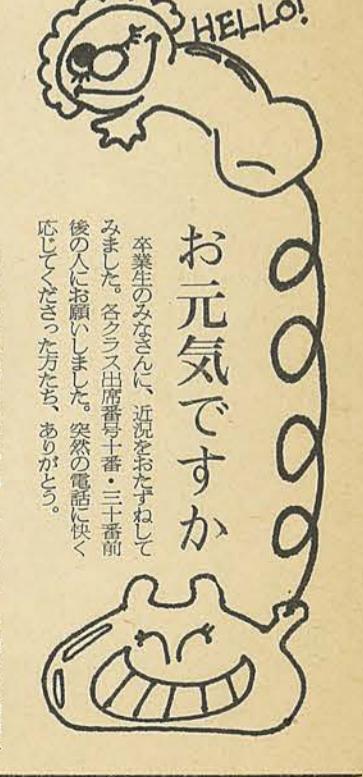 HELLO!
お元気ですか
卒業生のみなさんに、近況をおたずねして
みました。各クラス出席番号十番・三十番前
後の人にお願いしました。突然の電話に快く
応じてくださった方たち、ありがとう。